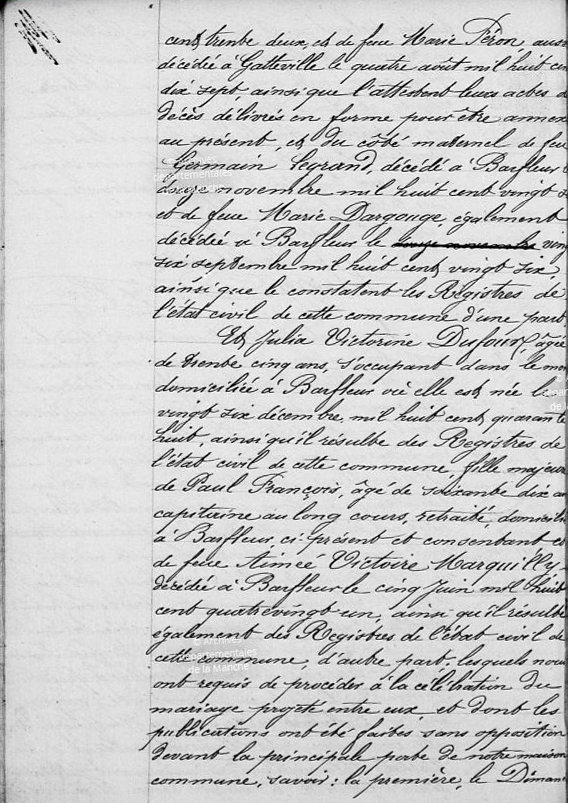 cent trente deux, et de feue Marie Féron, aussi
décédée à Gatteville le quatre août mil huit cent
dix sept, ainsi que l'attestent leurs actes de
décès délivrés en forme pour être annexés
au présent, et du côté maternel de feu
Germain Legrand, décédé à Barfleur le
douze novembre mil huit cent vingt
et de feue Marie Dargouge également
décédée à Barfleur le douze novembre ving
six septembre mil huit cent vingt six,
ainsi que le constatent les Registres de
l'état civil de cette commune d'une part,
Et Julia Victorine Dufour, âgée
de trente cinq ans, s'occupant dans le mén
domiciliée à Barfleur où elle est née le
vingt six décembre mil huit cent quarante
huit, ainsi qu'il résulte des Registres de
l'état civil de cette commune, fille majeure
de Paul François, âgé de soixante dix an
capitaine au long cours, retraité, domicilié
à Barfleur, ci présent et consentant et
de feue Aimée Victoire Marquilly
décédée à Barfleur le cinq Juin mil huit
cent quatrevingt un, ainsi qu'il résulte
également des Registres de l'état civil de
cette commune, d'autre part, lesquels nous
ont requis de procéder à la célébration du
mariage projeté entre eux et dont les
publications ont été faites sans opposition
devant la principale porte de notre maison
commune, savoir: la première, le Diman